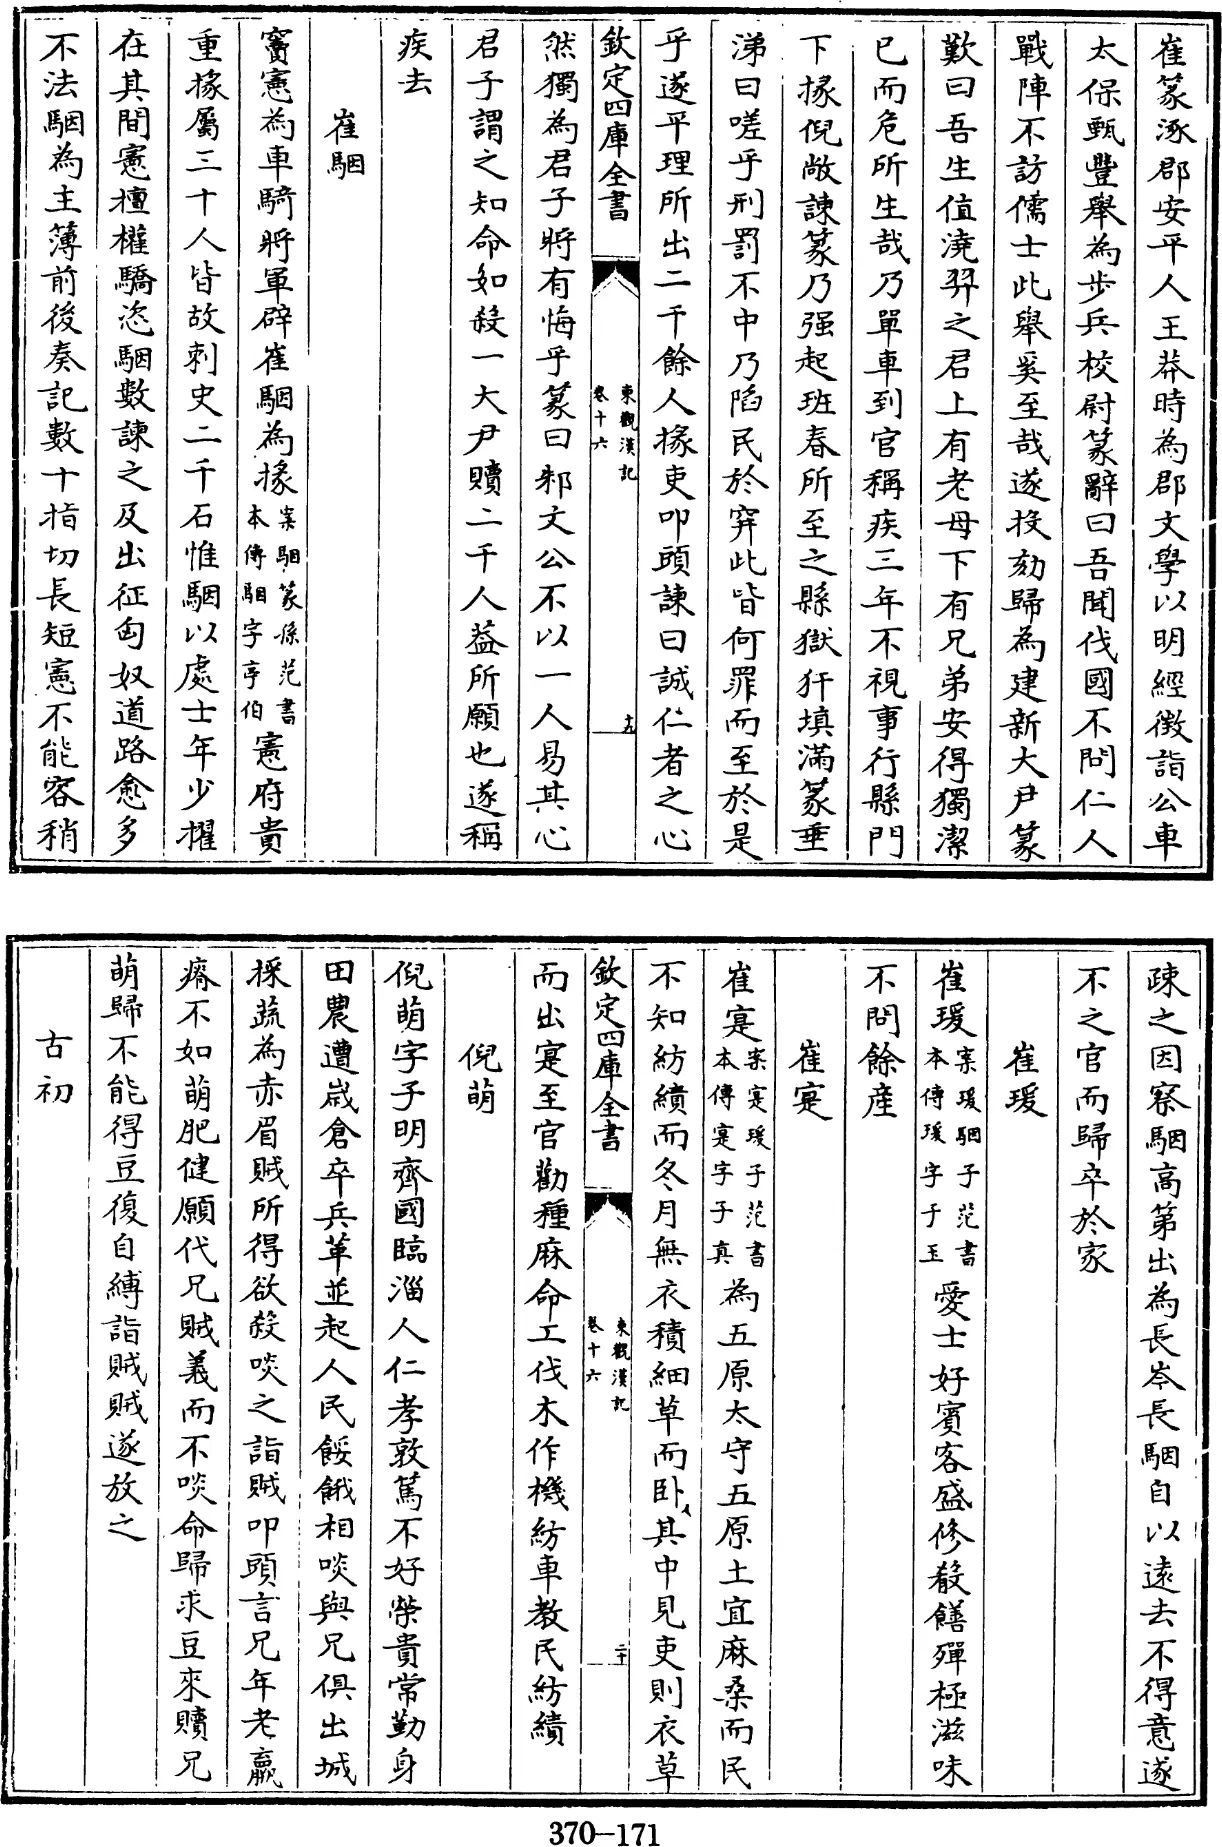 崔篆涿郡安平人王莽時為郡文學以明經徴詣公車
太保甄豐舉為步兵校尉篆辭曰吾聞伐國不問仁人
戰陣不訪儒士此舉奚至哉遂投劾歸為建新大尹篆
歎曰吾生值澆羿之君上有老母下有兄弟安得獨潔
已而危所生哉乃單車到官稱疾三年不視事行縣門
下掾倪敞諫篆乃强起班春所至之縣獄犴填滿篆垂
涕曰嗟乎刑罰不中乃陷民於穽此皆何罪而至於是
乎遂平理所出二千餘人掾吏叩頭諫曰誠仁者之心
欽定四庫全書
東觀漢記
卷十六
十九
然獨為君子將有悔乎篆曰邾文公不以一人易其心
君子謂之知命如殺一大尹贖二千人葢所願也遂稱
疾去
崔駰
竇憲為車騎將軍辟崔駰為掾案駰篆孫范書本傳駰字亭伯憲府貴
重掾屬三十人皆故刺史二千石惟駰以處士年少擢
在其間憲擅權驕恣駰數諫之及出征匈奴道路愈多
不法駰為主薄前後奏記數十指切長短憲不能容稍
疎之因察駰高第出為長岑長駰自以逺去不得意遂
不之官而歸卒於家
崔瑗
崔瑗案瑗駰子范書本傳瑗字子玉愛士好賓客盛修殽饍殫極滋味
不問餘産
崔寔
崔寔案寔瑗子范書本傳寔字子真為五原太守五原土宜麻桑而民
不知紡績而冬月無衣積細草而卧其中見吏則衣草
欽定四庫全書
東觀漢記
卷十六
二十
而出寔至官勸種麻命工伐木作機紡車教民紡績
倪萌
倪萌字子明齊國臨淄人仁孝敦篤不好榮貴常勤身
田農遭嵗倉卒兵革並起人民餒餓相啖與兄俱出城
採蔬為赤眉賊所得欲殺啖之詣賊叩頭言兄年老羸
瘠不如萌肥健願代兄賊義而不啖命歸求豆來贖兄
萌歸不能得豆復自縛詣賊賊遂放之
古初
370-171